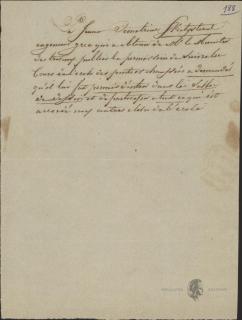 188
Le Sieur Démétrius
ragement grec qui a obtenu de Mr. le Ministre
des travaux publics la permission de suivre les
Cours de l'école des ponts et chaussées a demandé
qu'il lui fut permis d'entrer dans les Salles
de dessin et de participer à tout ce qui est
accordé aux autres élèves de l'école